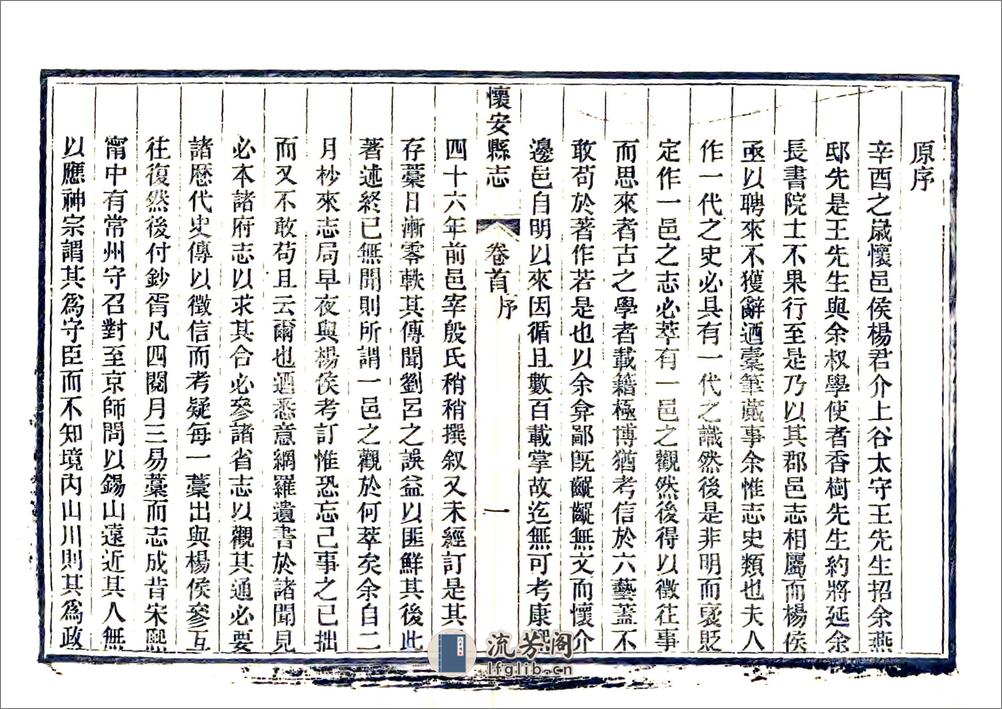 原序
辛酉之嵗懷邑侯楊君介上谷太守王先生招余燕
邸先是王先生與余叔學使者香樹先生約將延余
長書院士不果行至是乃以其郡邑志相屬而楊侯
亟以聘來不獲辭迺橐筆蕆事余惟志史類也夫人
作一代之史必具有一代之識然後是非明而褒貶
定作一邑之志必萃有一邑之觀然後得以徵往事
而思來者古之學者載籍極博猶考信於六藝蓋不
敢苟於著作若是也以余弇鄙旣齷齪無文而懷介
邊邑自明以來因循且數百載掌故迄無可考康熙
懷安縣志
卷首
序
一
四十六年前邑宰殷氏稍稍撰叙又未經訂是其
存藁日漸零軼其傳聞劉呂之誤益以匪鮮其後此
著述終已無聞則所謂一邑之觀於何萃矣余自二
月杪來志局早夜與楊侯考訂惟恐忘己事之已拙
而又不敢苟且云爾也迺悉意網羅遺書於諸聞見
必本諸府志以求其合必參諸省志以觀其通必要
諸歴代史傳以徵信而考疑每一藁出與楊侯參互
往復然後付鈔胥凡四閱月三易藁而志成昔宋熙
甯中有常州守召對至京師問以錫山遠近其人無
以應神宗謂其爲守臣而不知境内山川則其爲政
流芳阁
lfglib.cn